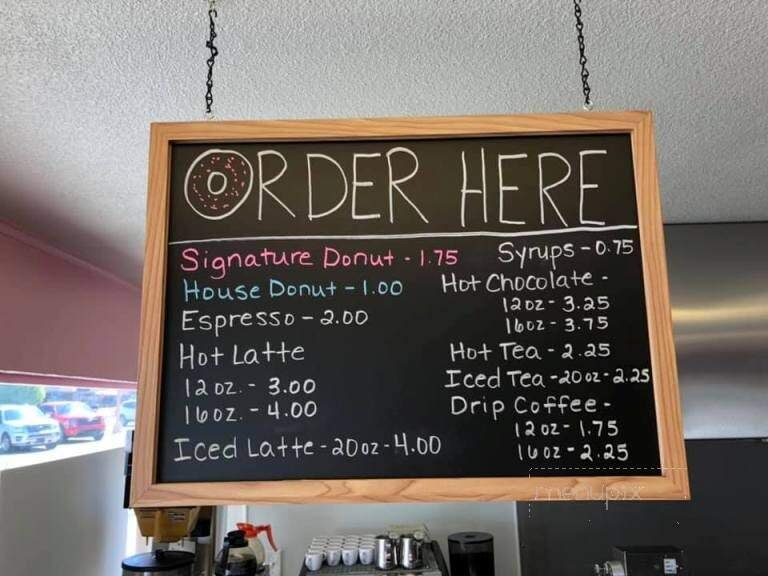 ORDER HERE
Signature Donut - 1.75
House Donut - 1.00
Espresso - 2.00
Hot Latte
12 oz. - 3.00
16 oz. - 4.00
Iced Latte - 20 oz - 4.00
Syrups - 0.75
Hot Chocolate -
12 oz - 3.25
16 oz - 3.75
Hot Tea - 2.25
Iced Tea - 20 oz - 2.25
Drip Coffee -
12 oz - 1.75
16 oz - 2.25
menupix